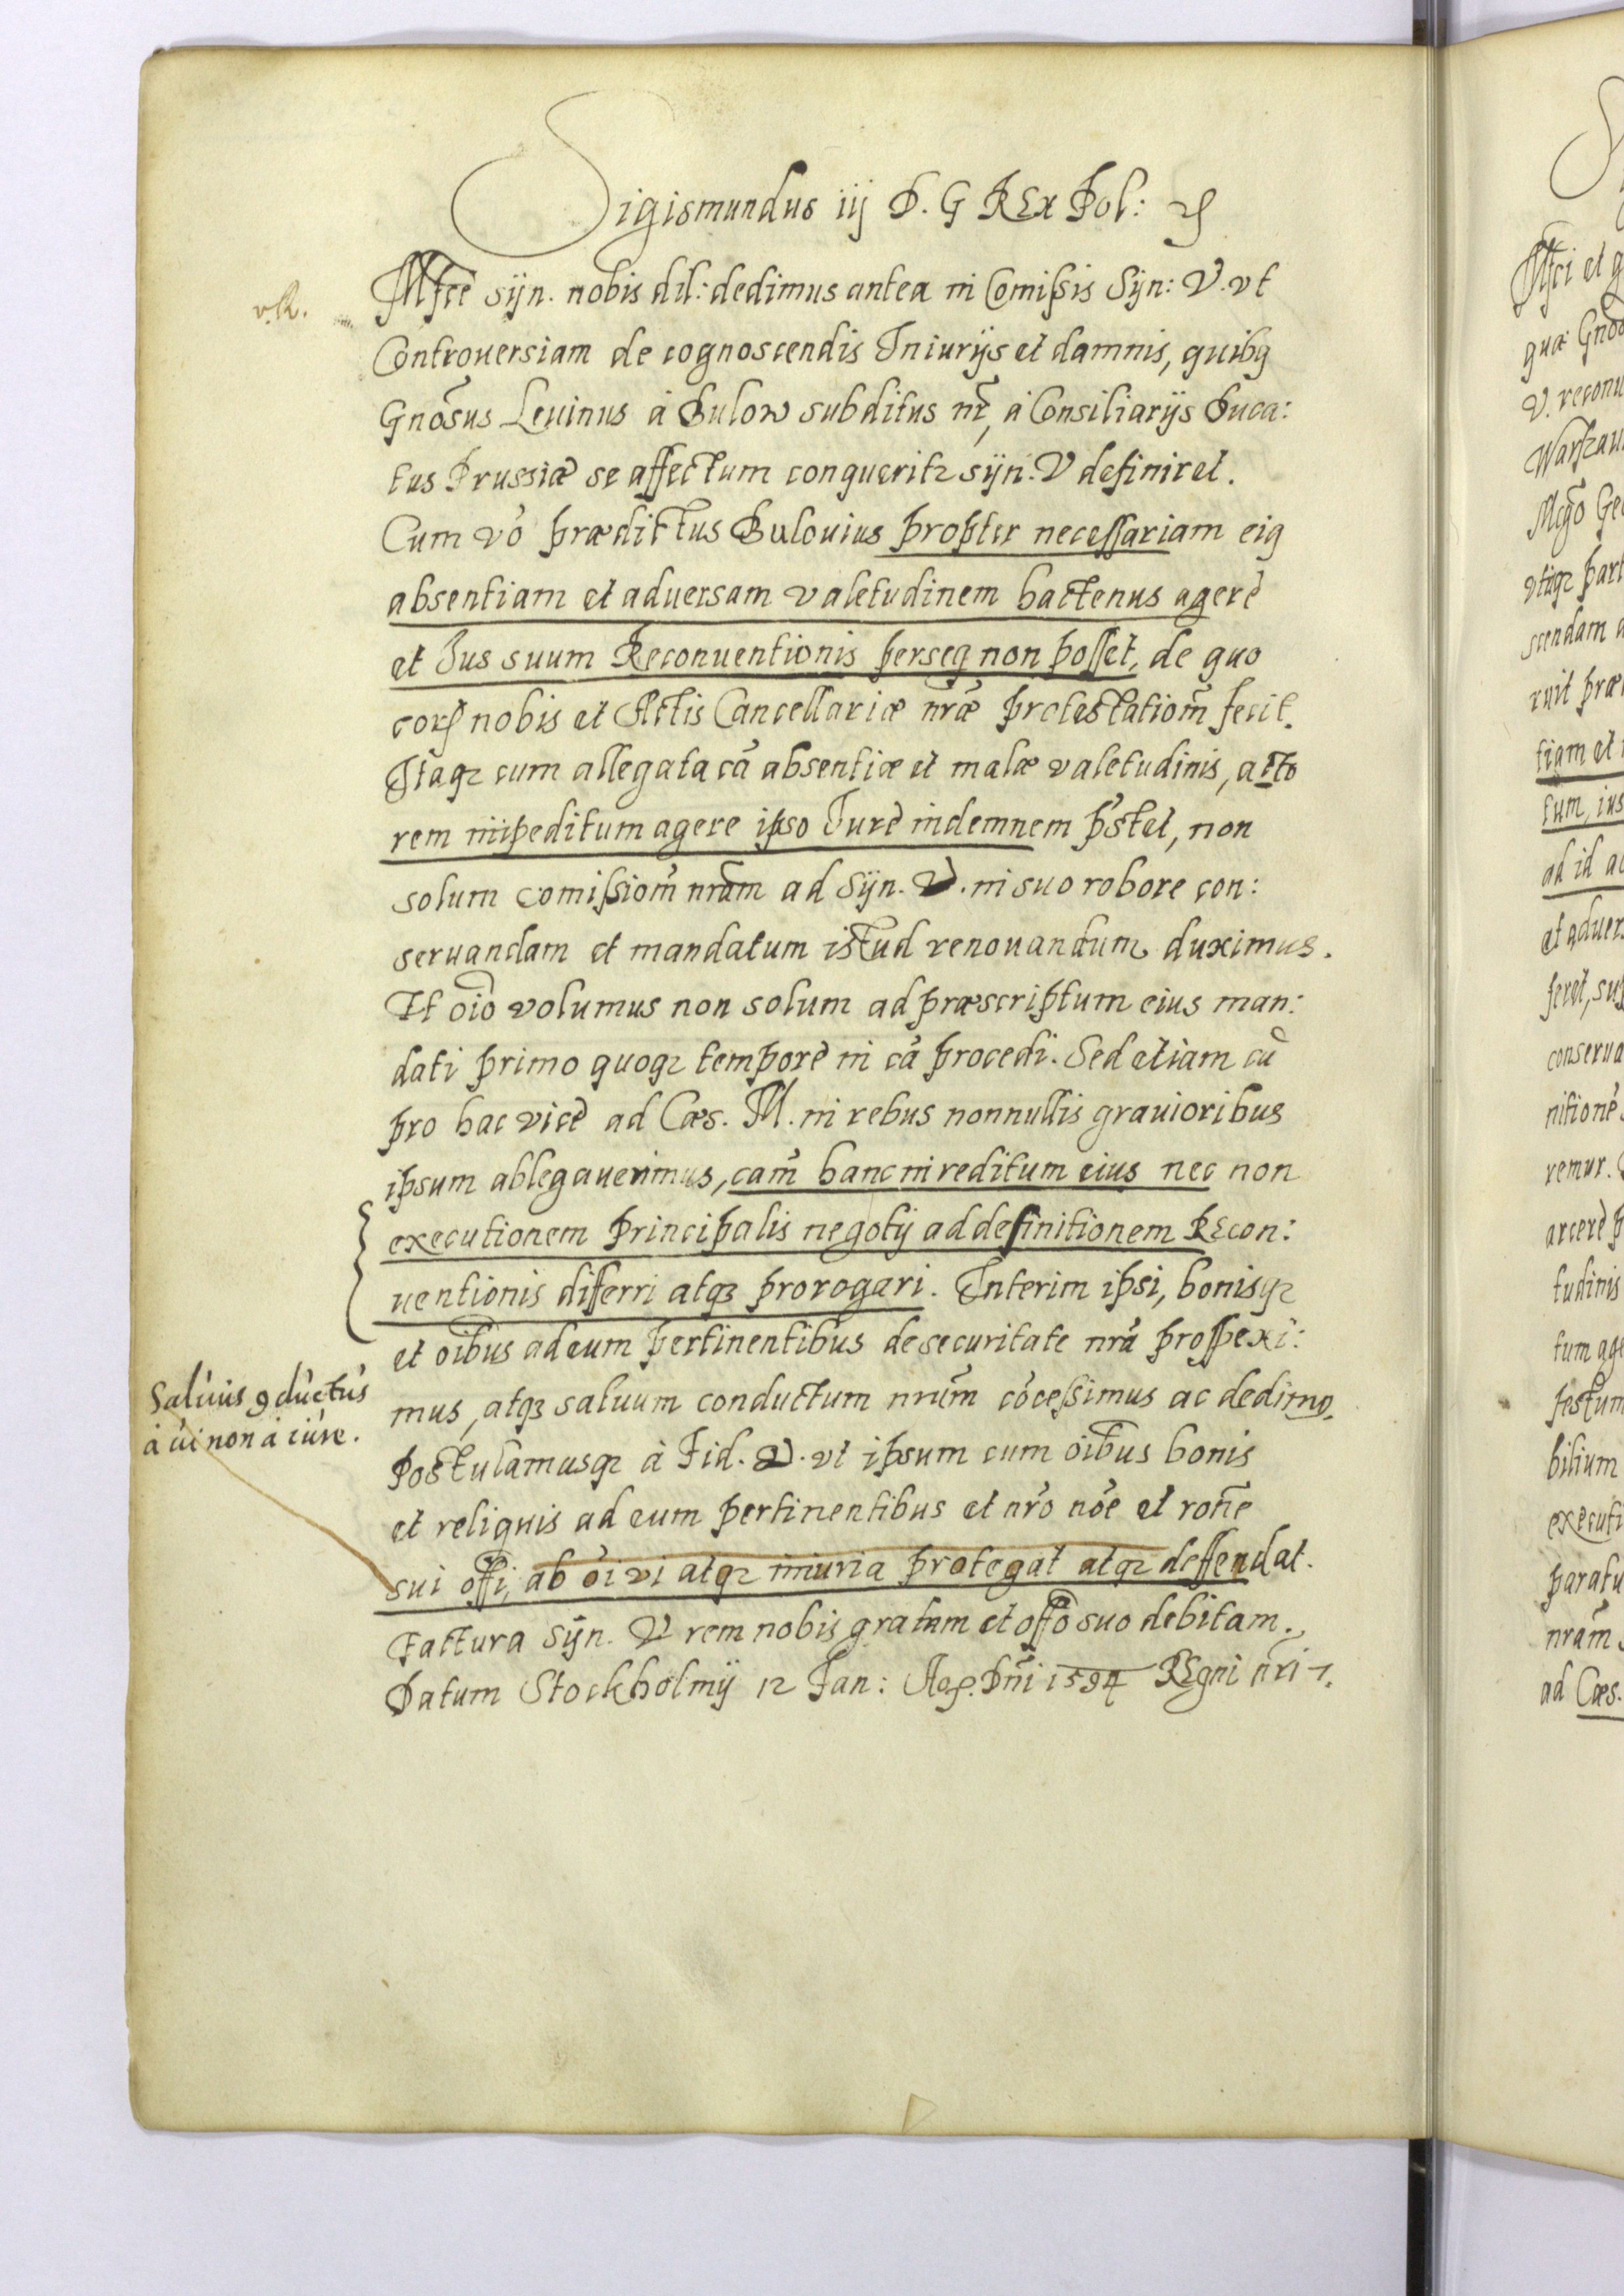 Sigismundus iij D. G REx Pol: ꝛc
v. R.
Mfce syn. nobis dil: dedimus antea in Comißis Syn: V. vt
Controuersiam de cognoscendis Iniurijs et damnis, quibꝰ
Gnōsus Leuinus à Bulow subditus nr̄, à Consiliarijs Duca:
tus Prussiæ se affectum conqueritꝛ syn. V definiret.
Cum vō prædictus Bulouius propter necessariam eiꝰ
absentiam et aduersam valetudinem hactenus agerè
et Ius suum Reconuentionis perseq non posset, de quo
corꝫ nobis et Actis Cancellariæ nrǣ protestatiōm fecit.
Itaqꝫ cum allegata cā absentiæ et malæ valetudinis, acto
rem impeditum agere ipso Iurè indemnem p̄stet, non
solum comißiōm nrām ad Syn. V. in suo robore con:
seruandam et mandatum istud renouandum duximus.
Et oīo volumus non solum ad præscriptum eius man:
dati primo quoqꝫ temporè in cā procedi. Sed etiam cū
pro hac vicè ad Cæs. M. in rebus nonnullis grauioribus
ipsum ablegauerimus, cām hanc in reditum eius nec non
executionem principalis negotij ad definitionem REcon:
uentionis differri atqꝫ prorogari. Interim ipsi, bonisqꝫ
et oībus ad eum pertinentibus de securitate nrā prospexi:
Saluus ꝯductus
à ui non à iure.
mus, atqꝫ saluum conductum nrūm cōcessimus ac dedimꝰ.
Postulamusqꝫ à Fid. V. vt ipsum cum oībus bonis
et reliquis ad eum pertinentibus et nrō nōe et rōne
sui offi, ab oī vi atqꝫ iniuria protegat atqꝫ deffendat.
Factura Syn. V rem nobis gratam et offō suo debitam.
Datum Stockholmij 12 Jan: Ao. Dn̄i 1594 REgni nr̄i 7.